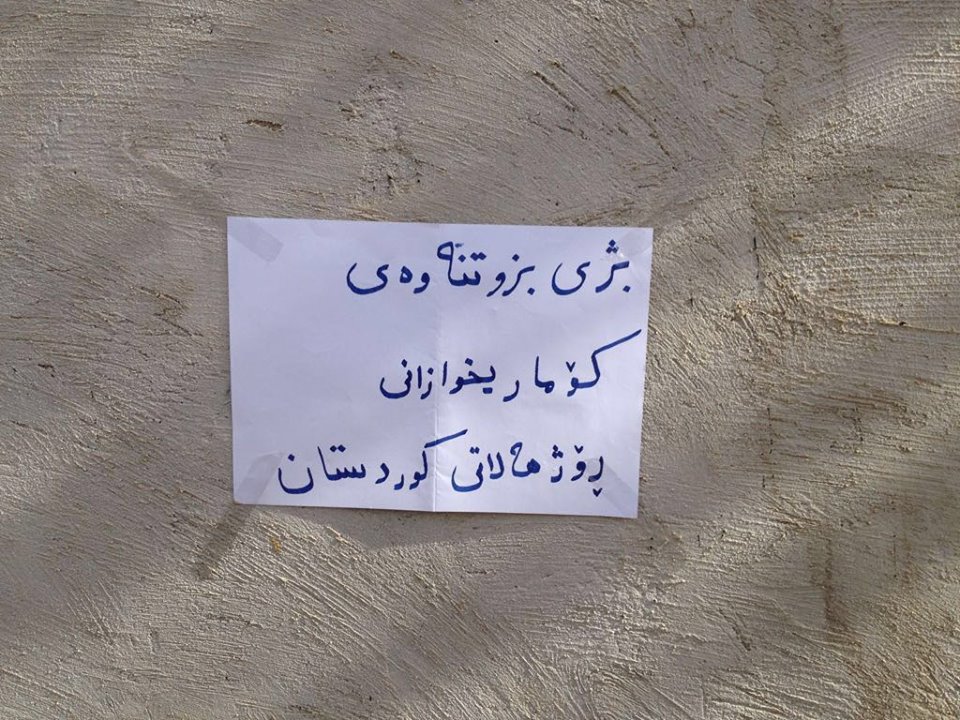 بژی بزوتنەوەی
کۆماریخوازانی
ڕۆژهەلاتی کوردستان